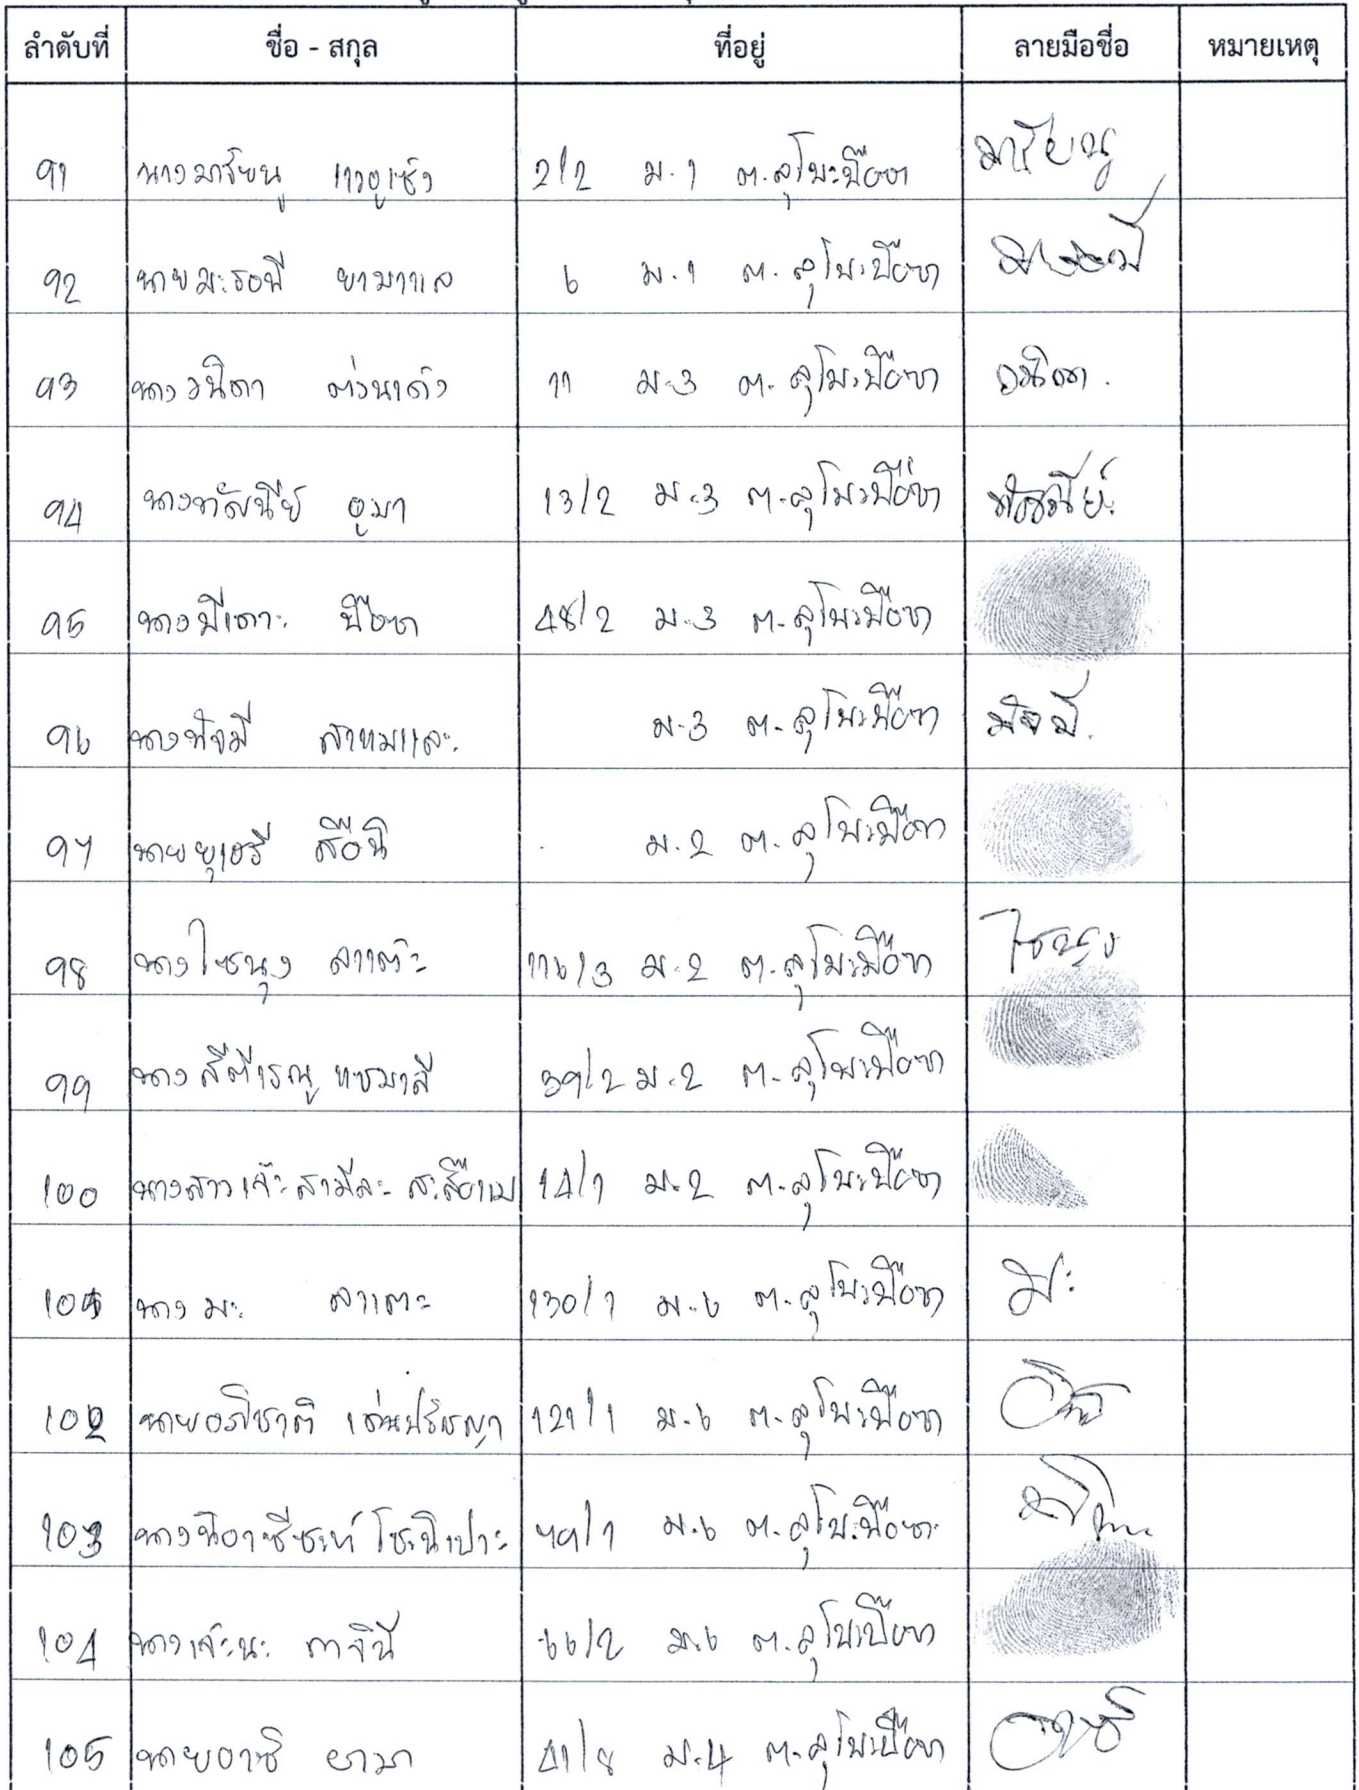 ลำดับที่ ชื่อ - สกุล ที่อยู่ ลายมือชื่อ หมายเหตุ
91 นางมารียนู 2/2 ม.1 ต.ลุโบะบือซา มารียนู
92 นายมะรอนี ยามาแล 6 ม.1 ต.ลุโบะบือซา
93 นางวนิดา ต่วนเด้ง 11 ม.3 ต.ลุโบะบือซา วนิดา
94 นางทัศนีย์ อูมา 13/2 ม.3 ต.ลุโบะบือซา ทัศนีย์
95 นางบีเดาะ บือซา 48/2 ม.3 ต.ลุโบะบือซา
96 นางพัจมี สาหมและ ม.3 ต.ลุโบะบือซา
97 นายยุเซรี สือนิ ม.2 ต.ลุโบะบือซา
98 นางไซนุง ลาเต๊ะ 116/3 ม.2 ต.ลุโบะบือซา ไซนุง
99 นางสีตีรณู 39/2 ม.2 ต.ลุโบะบือซา
100 นางสาวเจ๊ะสามีละ สะสือแม 14/1 ม.2 ต.ลุโบะบือซา
101 นางมะ ลาเตะ 130/1 ม.6 ต.ลุโบะบือซา มะ
102 นายอภิชาติ เด่นปรัชญา 121/1 ม.6 ต.ลุโบะบือซา
103 79/1 ม.6 ต.ลุโบะบือซา
104 นางเจ๊ะนะ กาจินี 66/2 ม.6 ต.ลุโบะบือซา
105 นายอาซิ ยามา 41/8 ม.4 ต.ลุโบะบือซา อาซิ